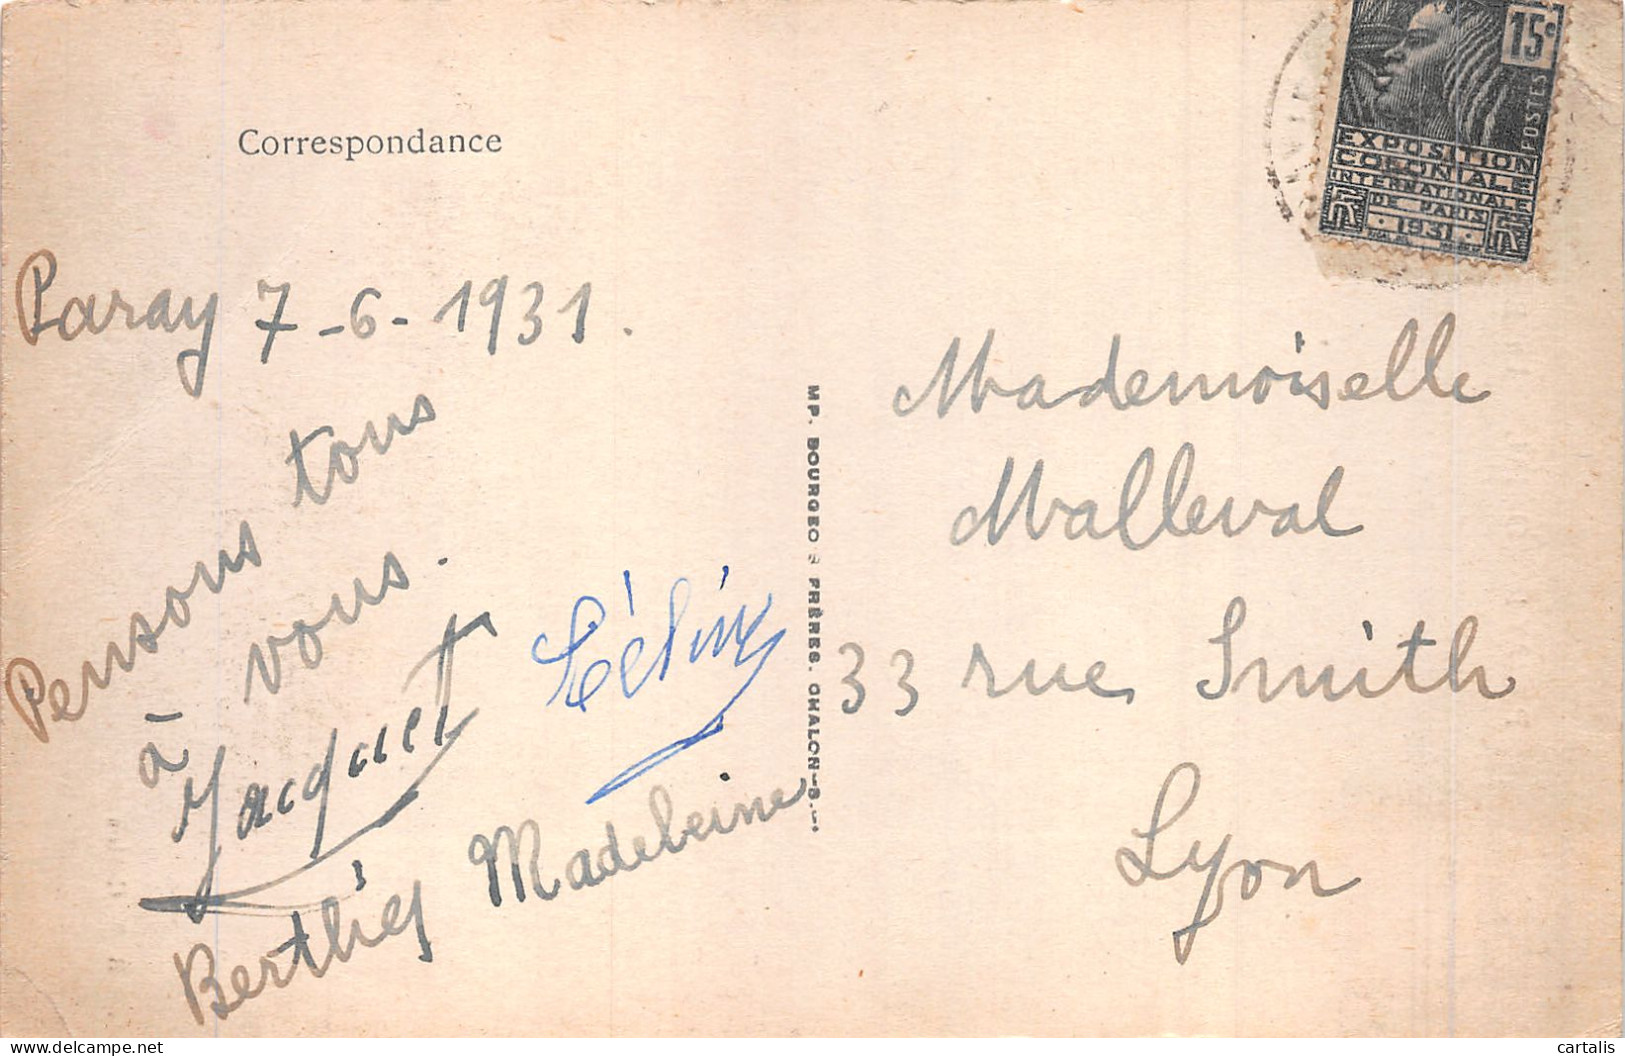 Correspondance
15c
POSTES
EXPOSITION
COLONIALE
INTERNATIONALE
DE PARIS
· 1931 ·
Paray 7-6-1931.
Pensons tous
à vous.
Jacquet
Madeleine
MP. BOURGEOIS FRÈRES. CHALON-S.-
Mademoiselle
Malleval
33 rue Smith
Lyon
cartalis